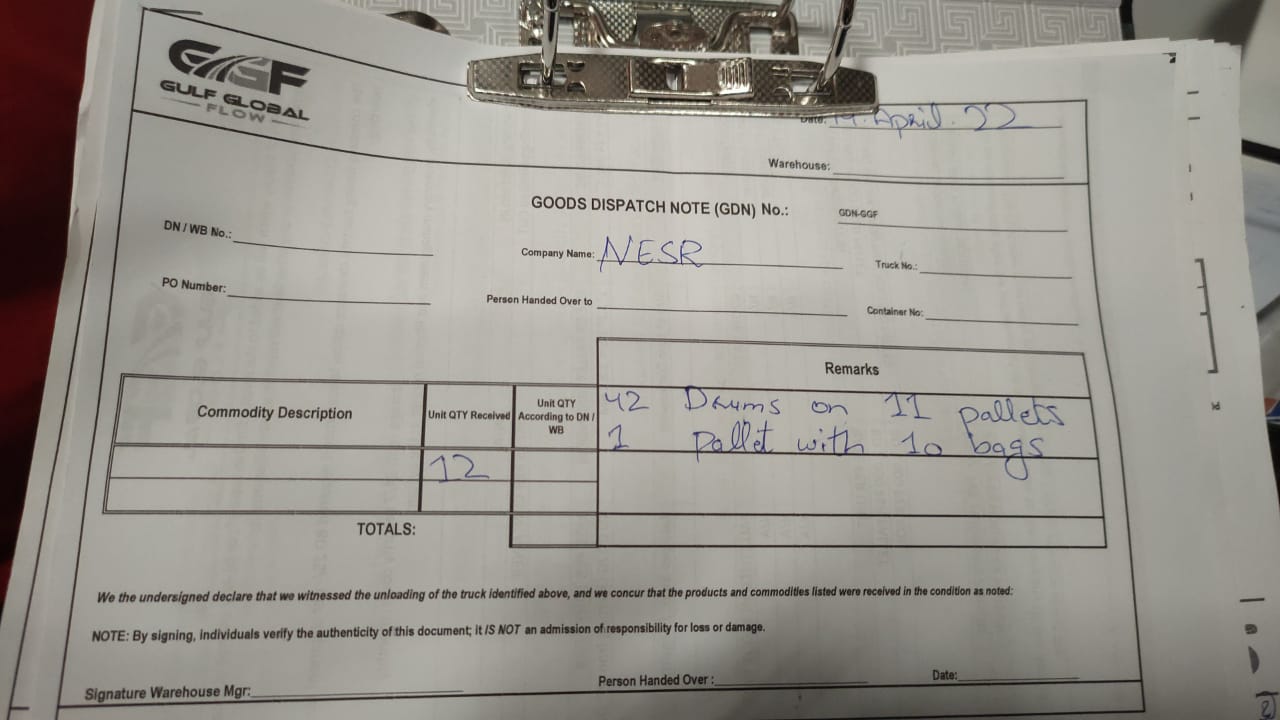 GGF
GULF GLOBAL
FLOW
Date: 14. April. 22
Warehouse:
GOODS DISPATCH NOTE (GDN) No.: GDN-GGF
DN / WB No.: Company Name: NESR Truck No.:
PO Number: Person Handed Over to Container No:
Remarks
Commodity Description
Unit QTY Received
Unit QTY
According to DN /
WB
42 Drums on 11 pallets
1 pallet with 10 bags
12
TOTALS:
We the undersigned declare that we witnessed the unloading of the truck identified above, and we concur that the products and commodities listed were received in the condition as noted:
NOTE: By signing, individuals verify the authenticity of this document; it IS NOT an admission of responsibility for loss or damage.
Signature Warehouse Mgr: Person Handed Over : Date: